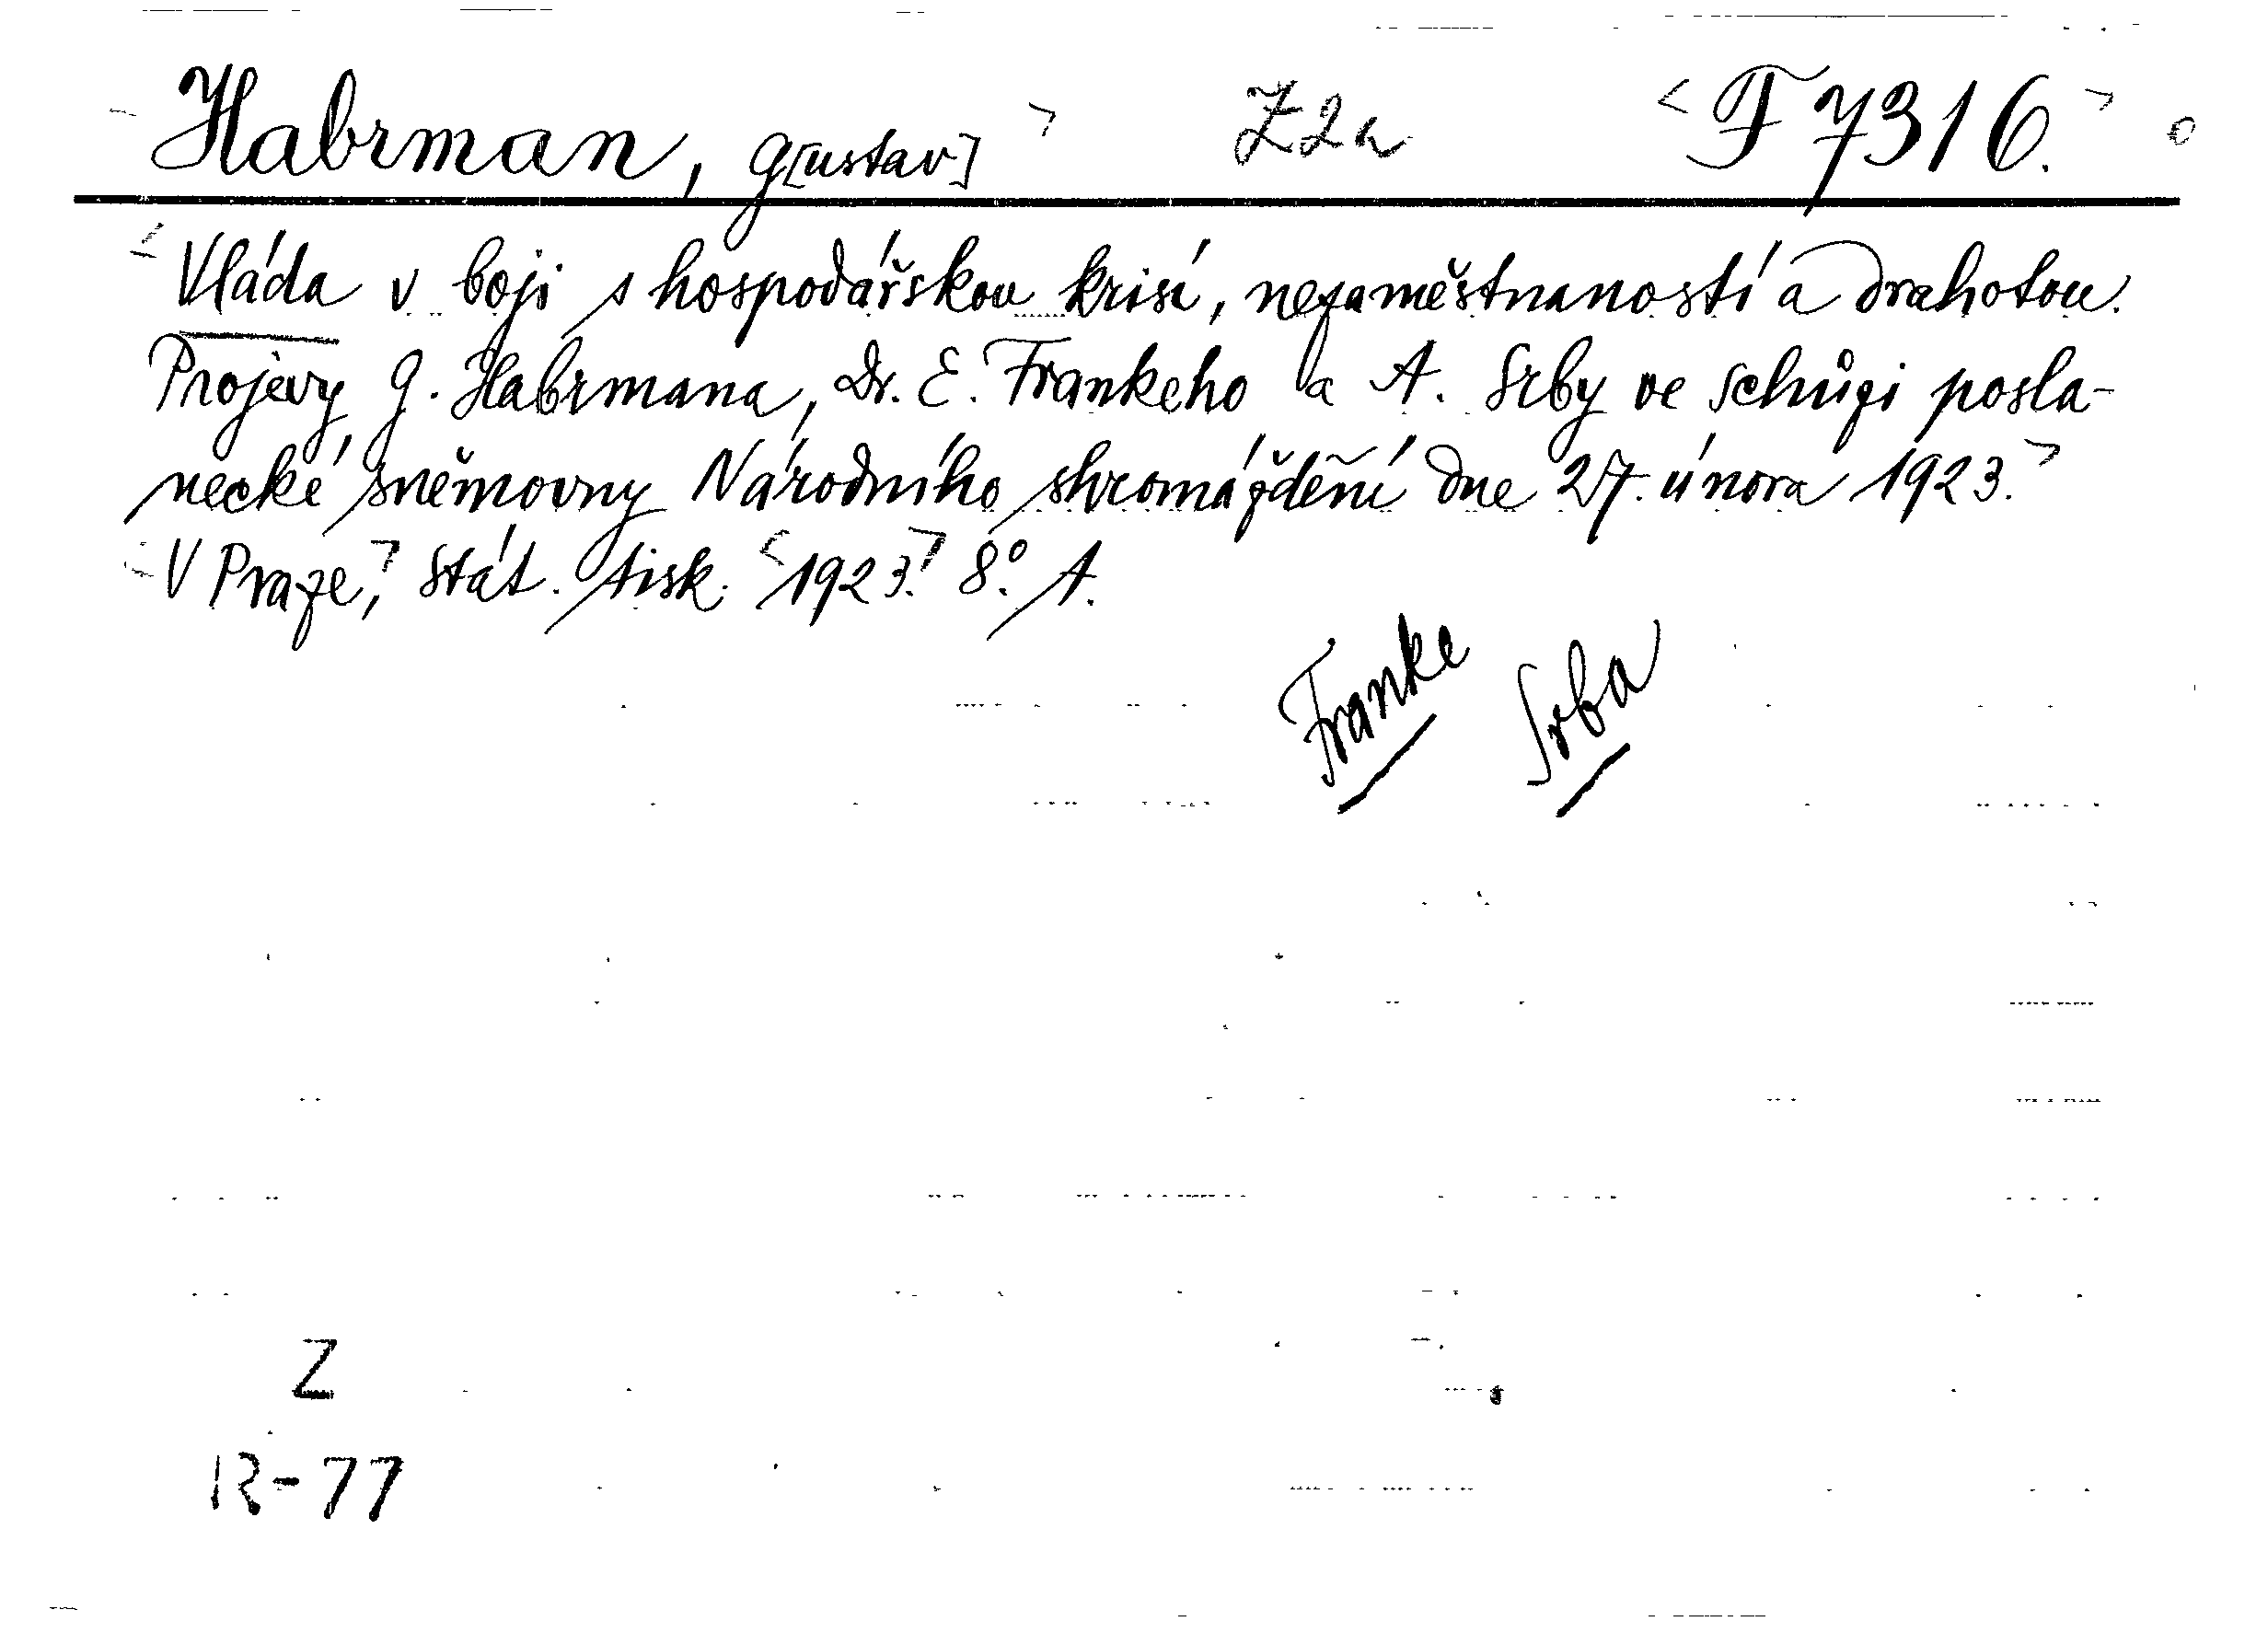 Habrman, G[ustav] Z2a F 7316.
Vláda v boji s hospodářskou krisí, nezaměstnaností a drahotou.
Projevy G. Habrmana, Dr. E. Frankeho a A. Srby ve schůzi posla-
necké sněmovny Národního shromáždění dne 27. února 1923.
V Praze, Stát. tisk. 1923. 8º. A.
Franke Srba
Z
R-77